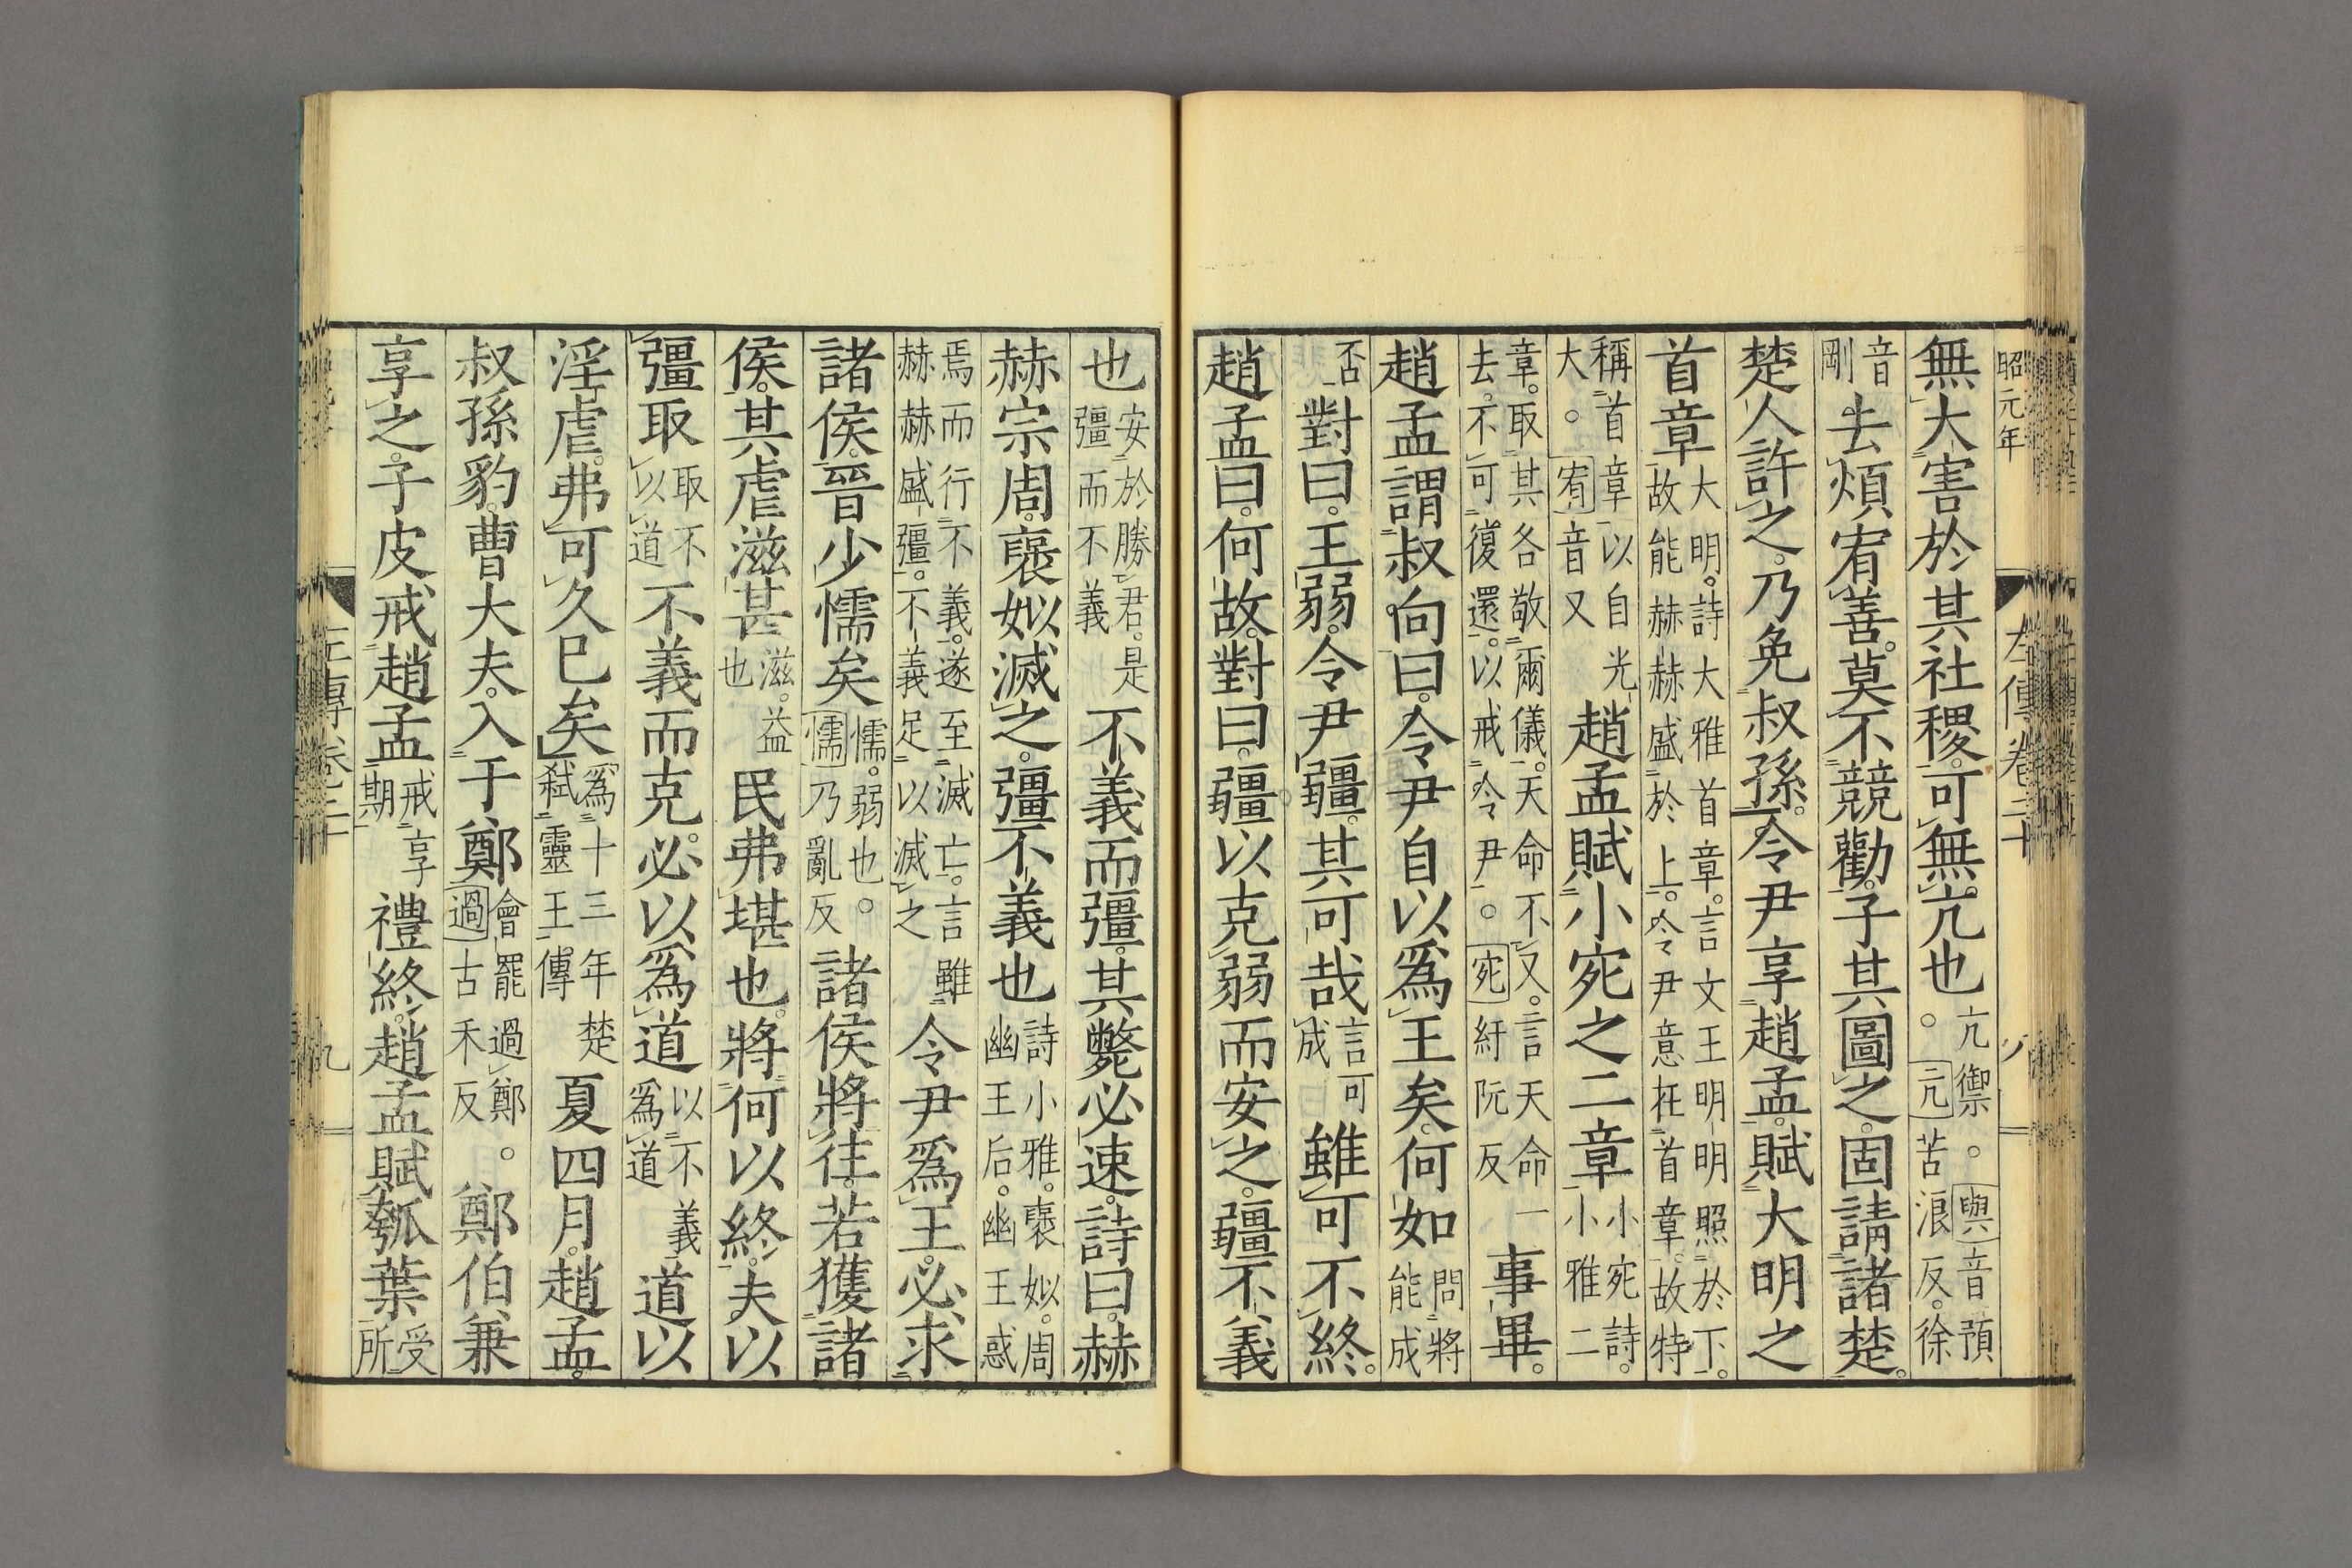 昭元年
左傳卷二十
八
無大害於其社稷。可無亢也亢禦。與音預。亢苦浪反。徐
音剛去煩宥善。莫不競勸。子其圖之。固請諸楚。
楚人許之。乃免叔孫。令尹享趙孟。賦大明之
首章大明。詩大雅首章。言文王明明照於下。故能赫赫盛於上。令尹意在首章。故特
稱首章以自光大。宥音又趙孟賦小宛之二章小宛詩。小雅二
章。取其各敬爾儀。天命不又。言天命一去。不可復還。以戒令尹。宛紆阮反事畢。
趙孟謂叔向曰。令尹自以爲王矣。何如問將能成
否對曰。王弱。令尹疆。其可哉言可成雖可不終。
趙孟曰。何故。對曰。疆以克弱而安之。疆不義
也安於勝君。是彊而不義不義而彊。其斃必速。詩曰。赫
赫宗周。襃姒滅之。彊不義也詩小雅。襃姒。周幽王后。幽王惑
焉而行不義。遂至滅亡。言雖赫赫盛彊。不義足以滅之令尹爲王。必求
諸侯。晉少懦矣懦。弱也。懦乃亂反諸侯將往。若獲諸
侯。其虐滋甚滋。益也民弗堪也。將何以終。夫以
彊取取不以道不義而克。必以爲道以不義爲道道以
淫虐。弗可久已矣爲十三年楚弒靈王傳夏四月。趙孟。
叔孫豹。曹大夫。入于鄭會罷過鄭。過古禾反鄭伯兼
享之。子皮戒趙孟戒享期禮終。趙孟賦瓠葉受所
左傳卷二十
九